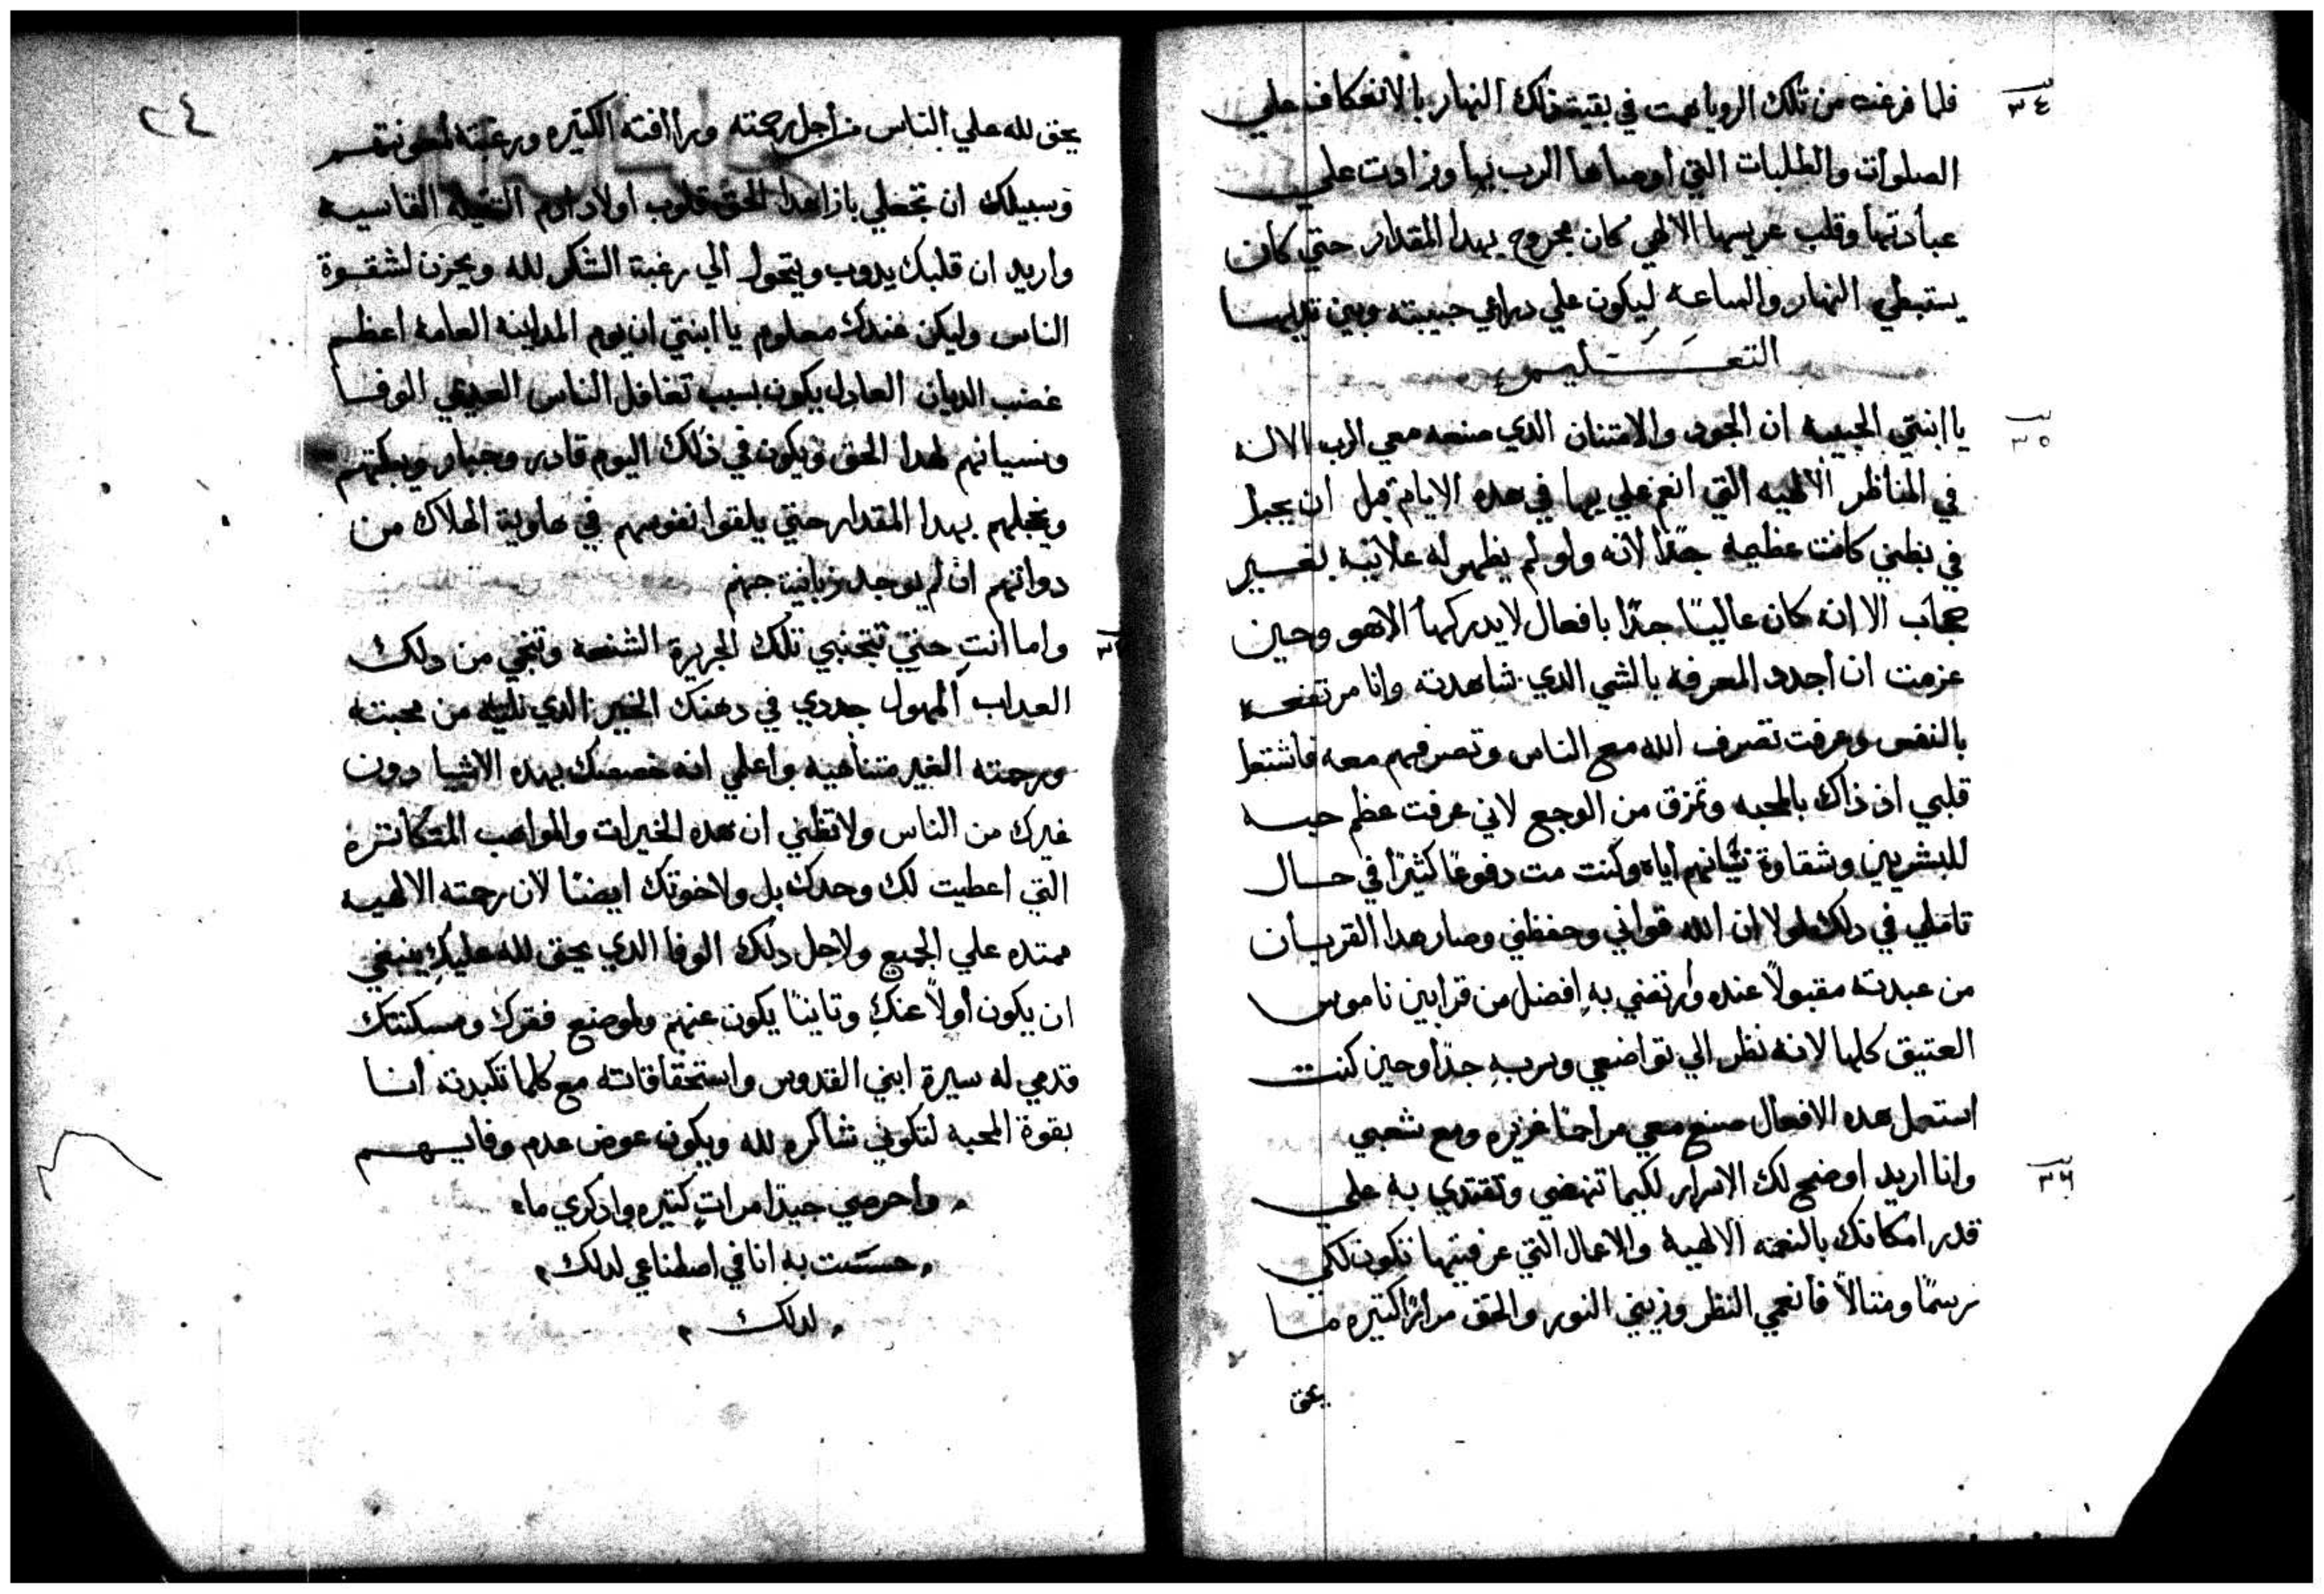 ٣٤
فلما فرغت من تلك الرويا همت في بقية ذلك النهار بالانعكاف علي
الصلوات والطلبات التي اوصاها الرب بها وزادت علي
عبادتها وقلب عريسها الالهي كان مجروح بهدا المقدار حتي كان
يستبطي النهار والساعه ليكون علي دراعي حبيبته وبين تدييها
التعليم
٣٥
يا ابنتي الحبيبه ان الجود والامتنان الدي صنعه معي الرب الاله
في المناظر الالهيه التي انعم علي بها في هده الايام قبل ان يحبل
في بطني كانت عظيمه جدًا لانه ولو لم يظهر له علانية بغير
حجاب الا انه كان عاليًا جدًا بافعال لا يدركها الاهو وحين
عزمت ان اجدد المعرفه بالشي الدي شاهدته وانا مرتفعه
بالنفس وعرفت تصرف الله مع الناس وتصرفهم معه فاشتعل
قلبي اذ ذاك بالمحبه وتمزق من الوجع لاني عرفت عظم حبه
للبشريين وشقاوة نسيانهم اياه وكنت مت دفوعًا كثيرًا في حال
تاملي في دلك لولا ان الله قواني وحفظني وصار هدا القربان
من عبدته مقبولاً عنده وارتضي به افضل من قرابين ناموس
العتيق كلها لانه نظر الي تواضعي وسر به جدًا وحين كنت
استعمل هده الافعال صنع معي مراحمًا غزيره ومع شعبي
٣٦
وانا اريد اوضح لك الاسرار لكيما تنهضي وتقتدي به علي
قدر امكانك بالنعمه الالهية والاعمال التي عرفتيها تكون لكي
رسمًا ومثالاً فانعمي النظر وزيني النور والحق مرارًا كتيره ما
يحق
٢٤
يحق لله علي الناس من اجل رحمته ورافته الكتيره ورغبته لمعونتهم
وسبيلك ان تجعلي بازا هدا الحق قلوب اولاد ادم التقيله القاسيه
واريد ان قلبك يدوب ويتحول الي رغبة الشكر لله ويحزن لشقوة
الناس وليكن عندك معلوم يا ابنتي ان يوم المداينه العامه اعظم
غضب الديان العادل يكون بسبب تغافل الناس العديمي الوفا
ونسيانهم لهدا الحق ويكون في ذلك اليوم قادر وجبار ويبكتهم
ويخجلهم بهدا المقدار حتي يلقوا نفوسهم في هاوية الهلاك من
دواتهم ان لم يوجد زبانية جهنم
واما انتِ حتي تتجنبي تلك الجريرة الشنعه وتنجي من دلك
العداب المهول جددي في دهنك الخير الدي نلتيه من محبته
ورحمته الغير متناهيه واعلمي انه خصصك بهده الاشيا دون
غيرك من الناس ولا تظني ان هده الخيرات والمواهب المتكاتره
التي اعطيت لك وحدك بل ولاخوتك ايضًا لان رحمته الالهيه
ممتده علي الجميع ولاجل دلك الوفا الدي يحق لله عليكِ ينبغي
ان يكون أولاً عنكِ وتانيًا يكون عنهم ولموضع فقرك ومسكنتك
قدمي له سيرة ابني القدوس واستحقاقاته مع كلما تكبدته انا
بقوة المحبه لتكوني شاكره لله ويكون عوض عدم وفايهم
واحرصي جيدًا مراتٍ كتيره وادكري ما
حسست به انا في اصطناعي لدلك
لدلك